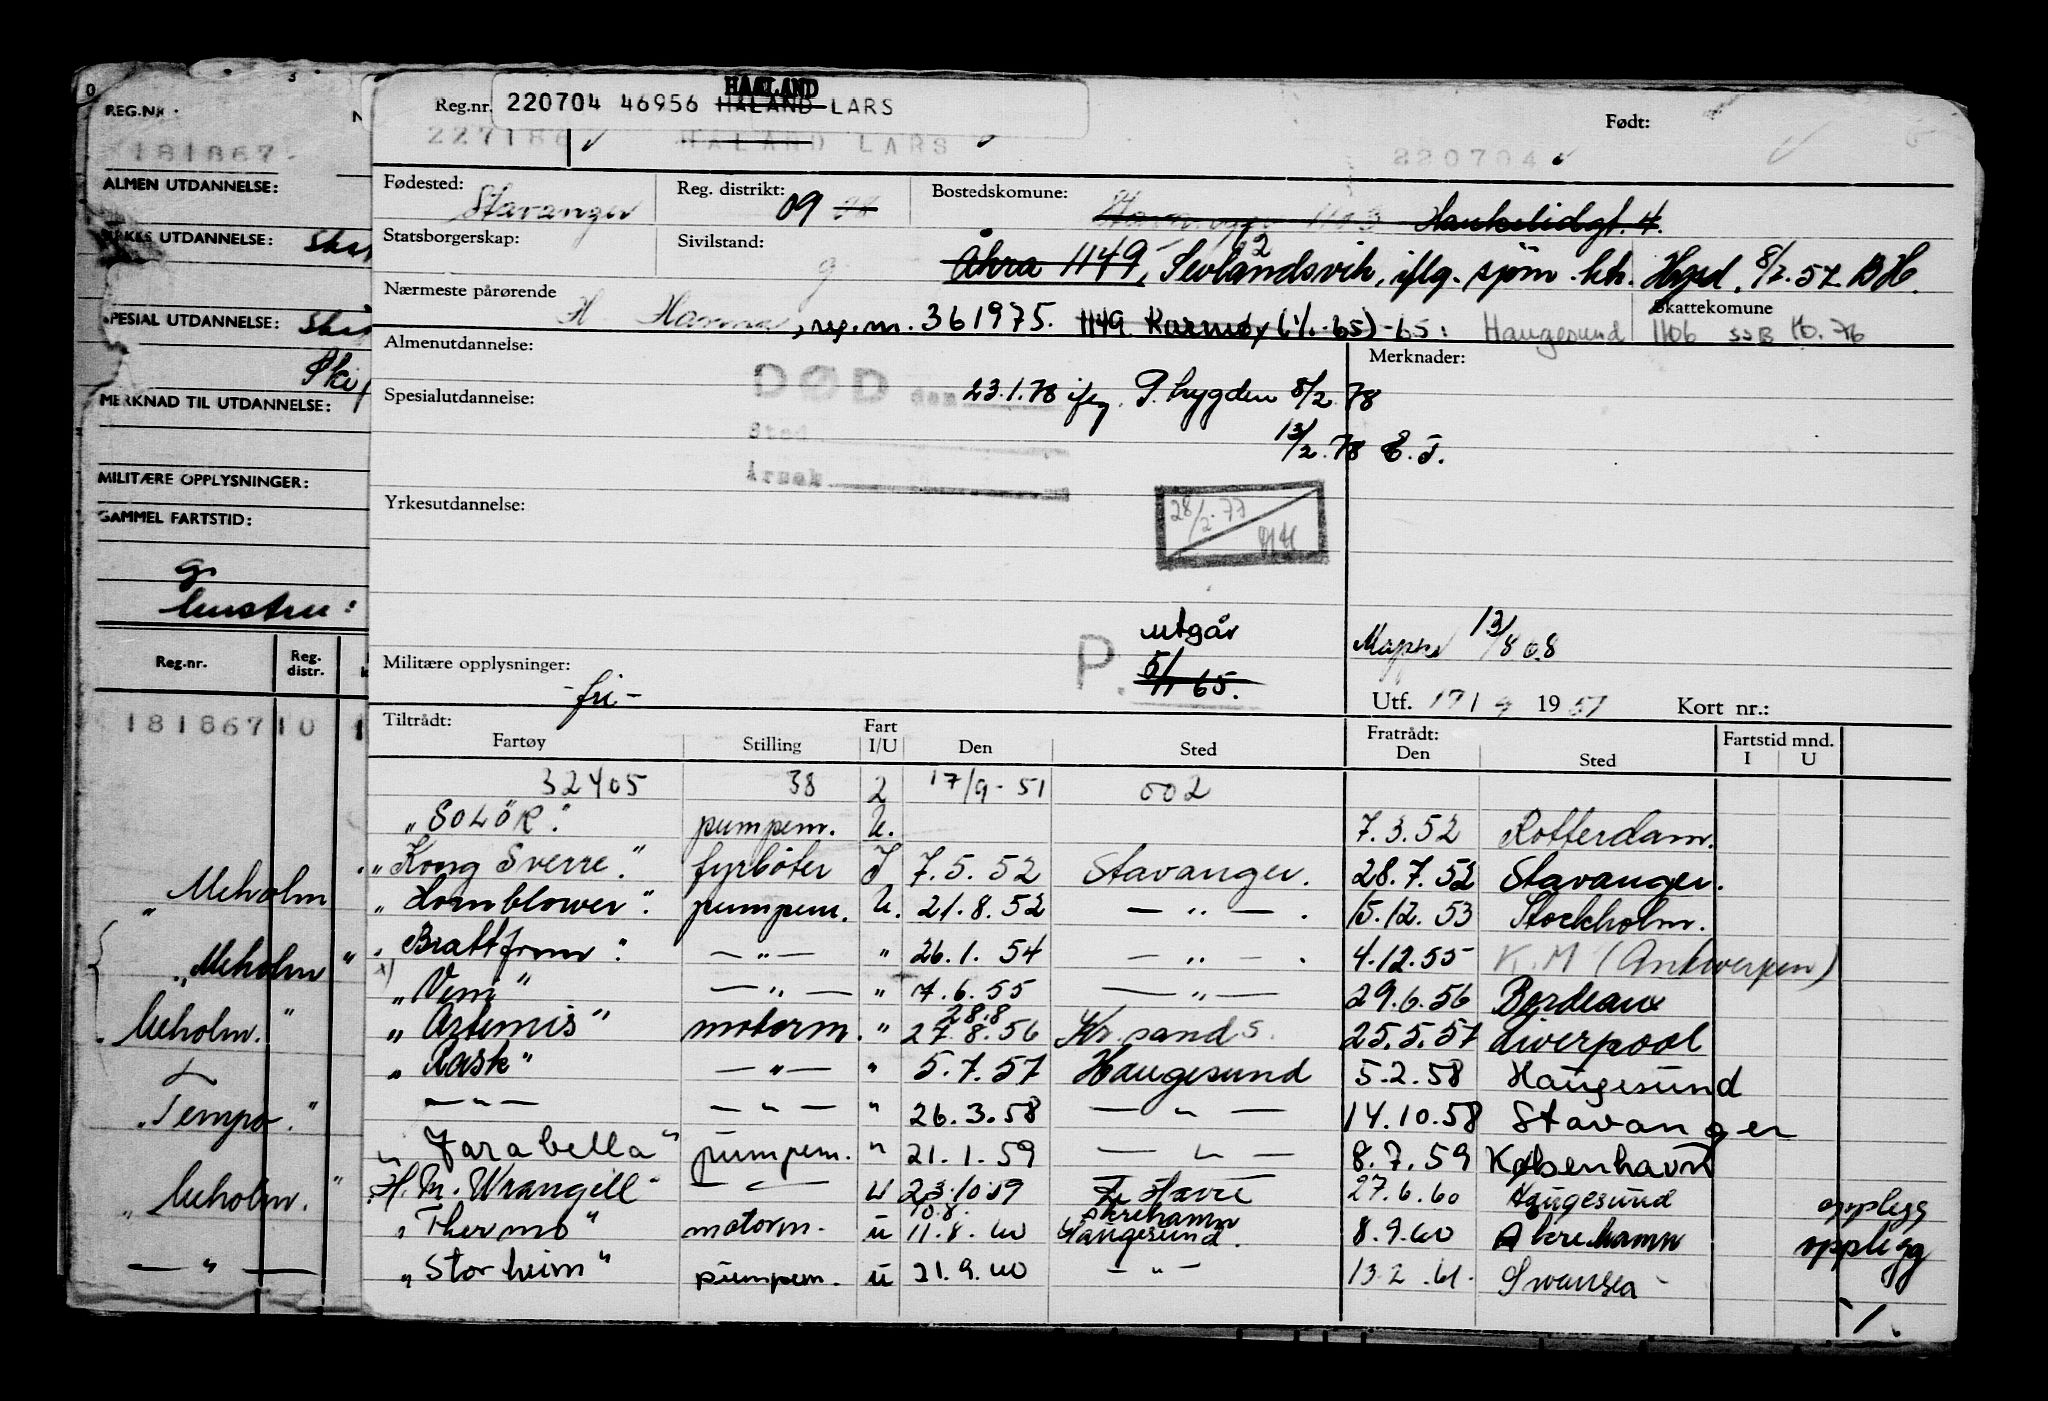 REG.NR.
181867
ALMEN UTDANNELSE:
YRKES UTDANNELSE:
SPESIAL UTDANNELSE:
MERKNAD TIL UTDANNELSE:
MILITÆRE OPPLYSNINGER:
GAMMEL FARTSTID:
Reg.nr. Reg. distr.
181867 10 1
"Meholm
"Meholm"
Meholm."
"Tempo."
"Meholm."
— " —
HAALAND
Reg.nr. 220704 46956 HALAND LARS
Født:
227186 HALAND LARS 220704
Fødested: Stavanger Reg. distrikt: 09 Bostedskomune: Haukelidgt. 4.
Statsborgerskap: Sivilstand: g Åkra 1149, Sevlandsvik, iflg. sjøm. ktr. Hgsd. 8/7.57 BH.
Nærmeste pårørende H Hanna, reg.nr. 361975. 1149 Karmøy (1/1-65) -65: Haugesund Skattekomune 1106 SSB 10.76
Almenutdannelse: Merknader:
DØD den 23.1.78 ifg. P. bygden 8/2.78
Spesialutdannelse:
Sted 13/2.78 E.J.
Årsak
Yrkesutdannelse: 28/2.77
utgår
Militære opplysninger: P. 5/11 65. 13/8 68
-fri- Utf. 17/9 1951 Kort nr.:
Tiltrådt: Fartøy Stilling Fart I/U Den Sted Fratrådt: Den Sted Fartstid mnd. I U
32405 38 2 17/9-51 002
"SOLÖR". pumpem. U. 7.3.52 Rotterdam.
"Kong Sverre". fyrbøter I 7.5.52 Stavanger. 28.7.52 Stavanger.
"Hornblower". pumpem. U. 21.8.52 — " — . 15.12.53 Stockholm.
"Brattfonn". — " — " 26.1.54 — " — . 4.12.55 K.M (Antwerpen)
"Veni" — " — " 7.6.55 — " — 29.6.56 Bordeaux
28.8
"Artemis" motorm. " 27.8.56 Kr.sand S. 25.5.57 Liverpool
"Rask" — " — " 5.7.57 Haugesund 5.2.58 Haugesund
— " — — " — " 26.3.58 — " — 14.10.58 Stavanger
"Farabella" pumpem. " 21.1.59 — " — 8.7.59 København
"H.M. Wrangell" — " — U 23.10.59 Le Havre 27.6.60 Haugesund opplegg
10.8. Åkrehamn
"Thermo" motorm. u 11.8.60 Haugesund. 8.9.60 Åkrehamn opplegg
"Storheim" pumpem. u 21.9.60 — " — 13.2.61. Swansea